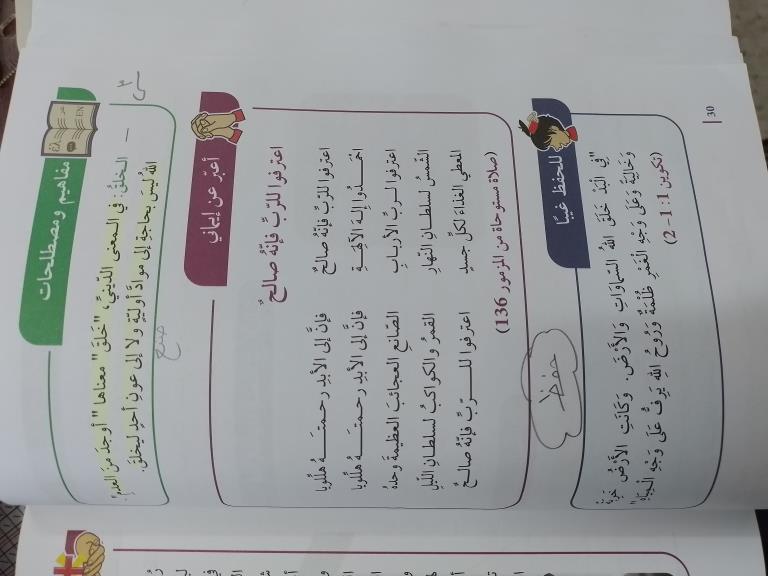 مفاهيم ومصطلحات
— الخلق: في المعنى الدّينيّ، "خَلَقَ" معناها "أوجدَ مِنَ العدم".
اللهُ ليْسَ بحاجةٍ إلى موادَّ أوّليّةٍ ولا إلى عونِ أحدٍ ليَخلقَ.
صنع
أعبّر عن إيماني
اعترفوا للرّبِّ فإنّهُ صالحٌ
اعترفوا للرّبِّ فإنّهُ صالحٌ فإنَّ إلى الأبدِ رحمتَـــهُ هللويا
احْمَـــدُوا إلهَ الآلِهَةِ فإنَّ إلى الأبدِ رحمتَـــهُ هللويا
اعترفوا لــربِّ الأربابِ الصّانعِ العجائبَ العظيمةَ وحدَهُ
الشّمسُ لسلطانِ النّهارِ القمرُ والكواكبُ لسلطانِ اللّيلِ
المعطي الغذاءَ لكلِّ جسدٍ اعترفوا للــرّبِّ فإنّهُ صالــحٌ
(صلاة مستوحاة من المزمور 136)
للحفظ غيبًا
حفظ
"فِي الْبَدْءِ خَلَقَ اللهُ السَّمَاوَاتِ وَالأَرْضَ. وَكَانَتِ الأَرْضُ خَرِبَةً
وَخَالِيَةً وَعَلَى وَجْهِ الْغَمْرِ ظُلْمَةٌ وَرُوحُ اللهِ يَرِفُّ عَلَى وَجْهِ الْمِيَاهِ"
(تكوين 1: 1-2)
30